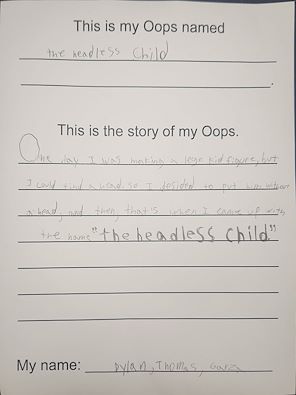 This is my Oops named
the headless Child
This is the story of my Oops.
One day I was making a lego kid figure, but
I could find a head. so I desided to put him without
a head, and then, that's when I came up with
the name "the headless Child"
My name: Dylan, Thomas, Garza